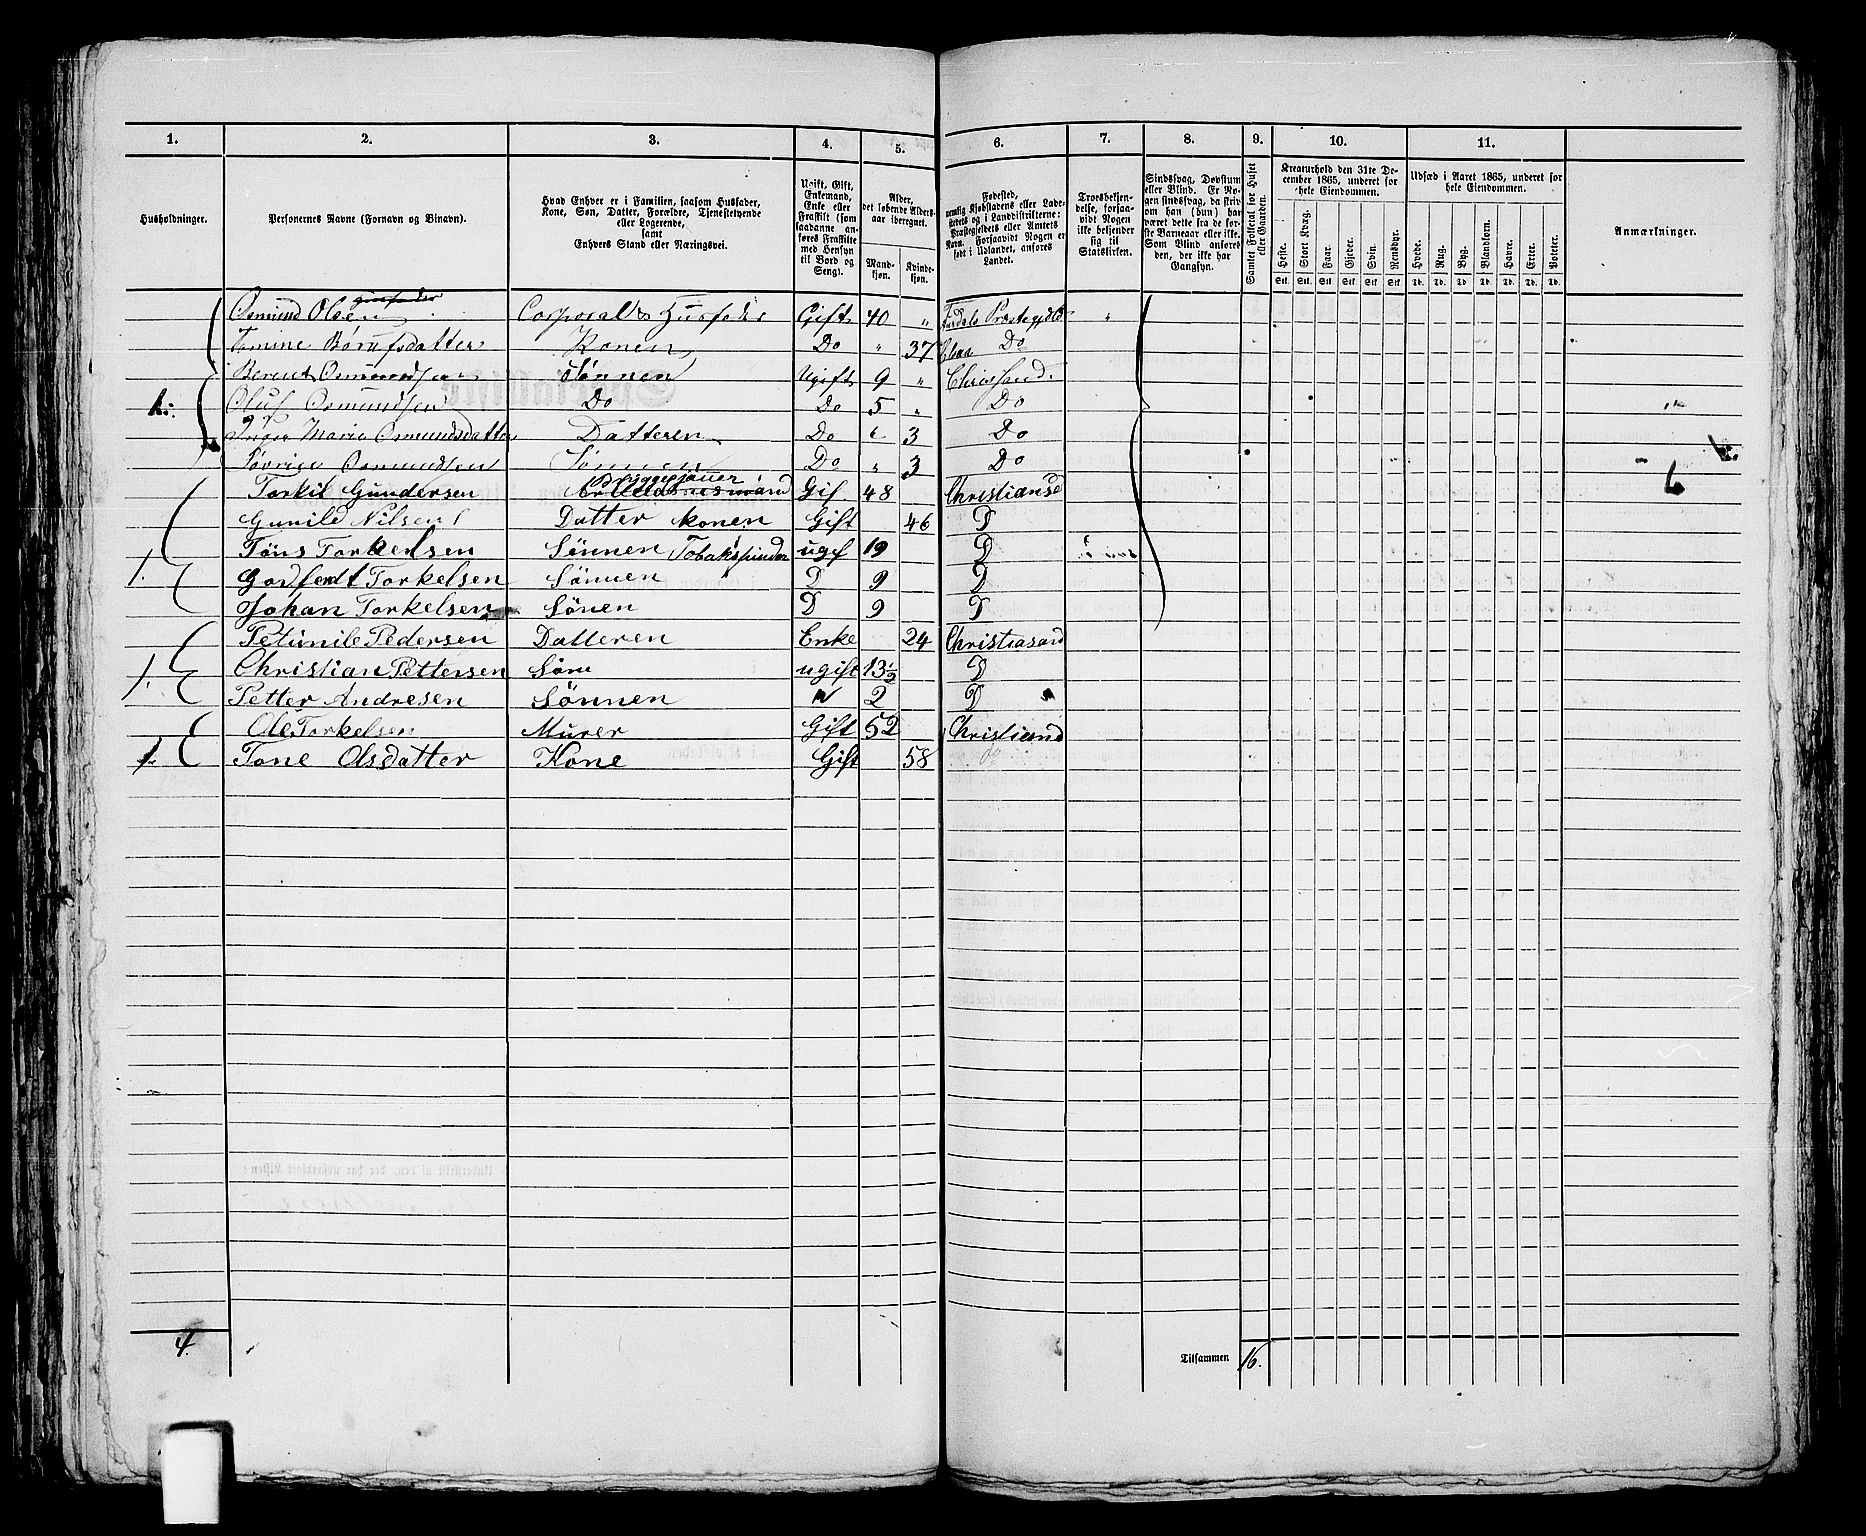 1. 2. 3. 4. 5. 6. 7. 8. 9. 10. 11.
Husholdninger.
Personernes Navne (Fornavn og Binavn).
Hvad Enhver er i Familien, saasom Husfader, Kone, Søn, Datter, Forældre, Tjenestetyende eller Logerende, samt Enhvers Stand eller Næringsvei.
Ugift, Gift, Enkemand, Enke eller Fraskilt (som saadanne anføres Fraskilte med Hensyn til Bord og Seng).
Alder, det løbende Alders-aar iberegnet.
Mandkjøn. Kvindekjøn.
Fødested, nemlig Kjøbstadens eller Ladestedets og i Landdistrikterne: Præstegjeldets eller Amtets Navn. Forsaavidt Nogen er født i Udlandet, anføres Landet.
Troesbekjendelse, forsaavidt Nogen ikke bekjender sig til Statskirken.
Sindssvag, Døvstum eller Blind. Er Nogen sindssvag, da skrives om han (hun) har været dette fra første Barneaar eller ikke. Som Blind anføres den, der ikke har Gangsyn.
Samlet Folketal for Huset eller Gaarden.
Kreaturhold den 31te December 1865, underet for hele Eiendommen.
Heste. Stort Kvæg. Faar. Gjeder. Svin. Rensdyr.
Udsæd i Aaret 1865, underet for hele Eiendommen.
Hvede. Rug. Byg. Blandkorn. Havre. Erter. Poteter.
Anmærkninger.
Stk. Stk. Stk. Stk. Stk. Stk. Td. Td. Td. Td. Td. Td. Td.
Osmund Olsen Corporal & Husfader Gift 40 " Præstegjeld "
Konen Do " 37 Do
Berent Osmundsen Sønnen Ugift 9 " Chrissand.
1. Oluf Osmundsen Do Do 5 " Do
Inger Marie Osmundsdatter Datteren Do " 3 Do
Osmundsen Sønnen Do " 3 Do
Torkil Gundersen Bryggesjauer Gif 48 Christianss 6
Gunild Nilsen Datter konen Gift 46 D
Töns Torkelsen Sønnen Tobakspinder ugif 19 D
1. Godferdt Torkelsen Sønnen D 9 D
Johan Torkelsen Sønen D 9 D
Petimile Pedersen Datteren Enke 24 Christiasand
1. Christian Pettersen Søn ugift 13½ D
Petter Andresen Sønnen " 2 D
Ole Torkelsen Murer Gift 52 Christiand
1. Tone Olsdatter Kone Gift 58 do
4.
Tilsammen 16.